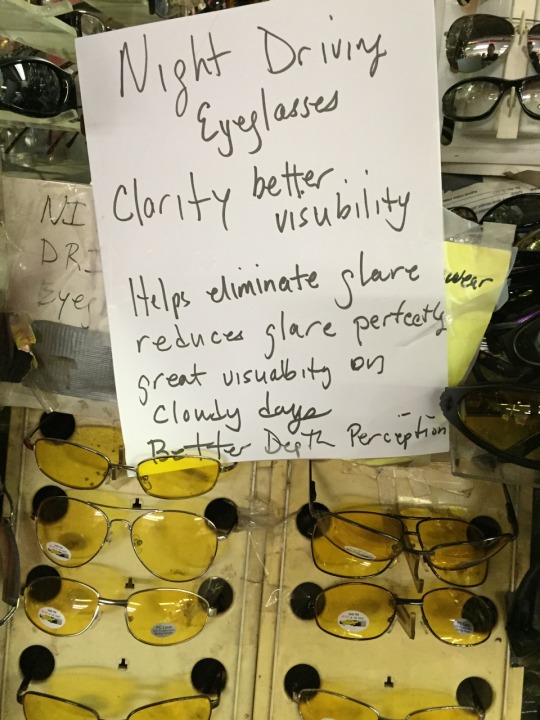 Night Driving
Eyeglasses
Clarity better
visubility
Helps eliminate glare
reduces glare perfectly
great visualbity on
Cloudy days
Better Depth Perception
NI
DRI
Eyeg
wear